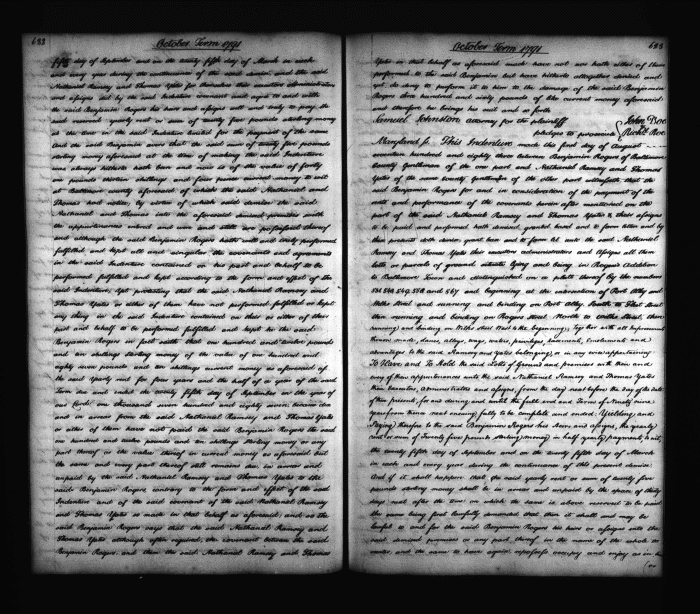 683
October Term 1791
fifth day of September and on the twenty fifth day of March in each
and every year during the continuance of the said demise and the said
Nathaniel Ramsey and Thomas Yates for themselves their executors administrators
and assigns did by the said Indenture covenant and agree to and with
the said Benjamin Rogers his heirs and assigns well and truly to pay the
said reserved yearly rent or sum of twenty five pounds sterling money
at the time in the said Indenture limited for the payment of the same
And the said Benjamin avers that the said sum of twenty five pounds
sterling money aforesaid at the time of making the said Indenture
was always hitherto hath been and now is of the value of forty
one pounds thirteen shillings and four pence current money to wit
at Baltimore county aforesaid of which the said Nathaniel and
Thomas had notice by virtue of which said demise the said
Nathaniel and Thomas into the aforesaid demised premises with
the appurtenances entered and were and still are possessed thereof
and although the said Benjamin Rogers hath well and truly performed
fulfilled and kept all and singular the covenants and agreements
in the said Indenture contained on his part and behalf to be
performed fulfilled and kept according to the form and effect of the
said Indenture Yet protesting that the said Nathaniel Ramsey and
Thomas Yates or either of them have not performed fulfilled or kept
any thing in the said Indenture contained on their or either of their
part and behalf to be performed fulfilled and kept the said
Benjamin Rogers in fact saith that one hundred and twelve pounds
and ten shillings sterling money of the value of one hundred and
eighty seven pounds and ten shillings current money as aforesaid of
the said Yearly rent for four years and the half of a year of the said
Term due and ended the twenty fifth day of September in the year of
our Lord one thousand seven hundred and eighty seven, became due
and in arrear from the said Nathaniel Ramsey and Thomas Yates
or either of them have not paid the said Benjamin Rogers the said
one hundred and twelve pounds and ten shillings sterling money or any
part thereof or the value thereof in current money as aforesaid but
the same and every part thereof still remains due in arrear and
unpaid by the said Nathaniel Ramsey and Thomas Yates to the
said Benjamin Rogers contrary to the form and effect of the said
Indenture and of the said covenant of the said Nathaniel Ramsey
and Thomas Yates so made in that behalf as aforesaid; and so the
said Benjamin Rogers says that the said Nathaniel Ramsey and
Thomas Yates although often required, the covenant between the said
Benjamin Rogers and them the said Nathaniel Ramsey and Thomas
October Term 1791
683
Yates in that behalf as aforesaid made have not nor hath either of them
performed to the said Benjamin but have hitherto altogether denied and
yet do deny to perform it to him to the damage of the said Benjamin
Rogers three hundred and sixty pounds of like current money aforesaid
and therefore he brings his suit and so forth
Samuel Johnston attorney for the plaintiff John Doe
pledges to prosecute Richd. Roe
Maryland ss. This Indenture made this first day of August
seventeen hundred and eighty three between Benjamin Rogers of Baltimore
County Gentleman of the one part and Nathaniel Ramsey and Thomas
Yates of the same County Gentlemen of the other part witnesseth that the
said Benjamin Rogers for and in consideration of the payment of the
rents and performance of the covenants herein after mentioned on the
part of the said Nathaniel Ramsey and Thomas Yates & their assigns
to be paid and performed hath demised, granted leased and to farm letten and by
these presents doth demise grant lease and to farm let unto the said Nathaniel
Ramsey and Thomas Yates their executors administrators and Assigns all those
lots or parcels of ground situate lying and being in Rogers's Addition
to Baltimore Town and distinguished on a platt thereof by the numbers
and 567 and beginning at the intersection of Port Alley and
Wilks Street and running and binding on Port Alley South to
then running and binding on Rogers street North to Wilks Street, then
running and binding on Wilks Street West to the beginning; Together with all improvements
thereon made, lanes, alleys, ways, waters, privileges, easements, emoluments and
advantages to the said Ramsey and Yates belonging, or in any wise appertaining
To Have and To Hold the said Lotts of Ground and premises with their and
every of their appurtenances unto the said Nathaniel Ramsey and Thomas Yates
their executors, administrators and assigns, from the day next before the day of the date
of these presents, for and during and until the full end and Term of Ninety nine
years from thence next ensuing fully to be complete and ended. Yielding and
Paying therefor to the said Benjamin Rogers his heirs and assigns, the yearly
rent or sum of Twenty five pounds sterling money in half yearly payments, to wit,
the twenty fifth day of September and on the twenty fifth day of March
in each and every year during the continuance of this present demise
And if it shall happen that the said yearly rent or sum of twenty five
pounds sterling money shall be in arrear and unpaid by the space of thirty
days next after the time on which the same is above reserved to be paid
the same being first lawfully demanded that then it shall and may be
lawful to and for the said Benjamin Rogers his heirs or assigns into the
said demised premises or any part thereof in the name of the whole to
enter and the same to have again repossess occupy and enjoy as in his